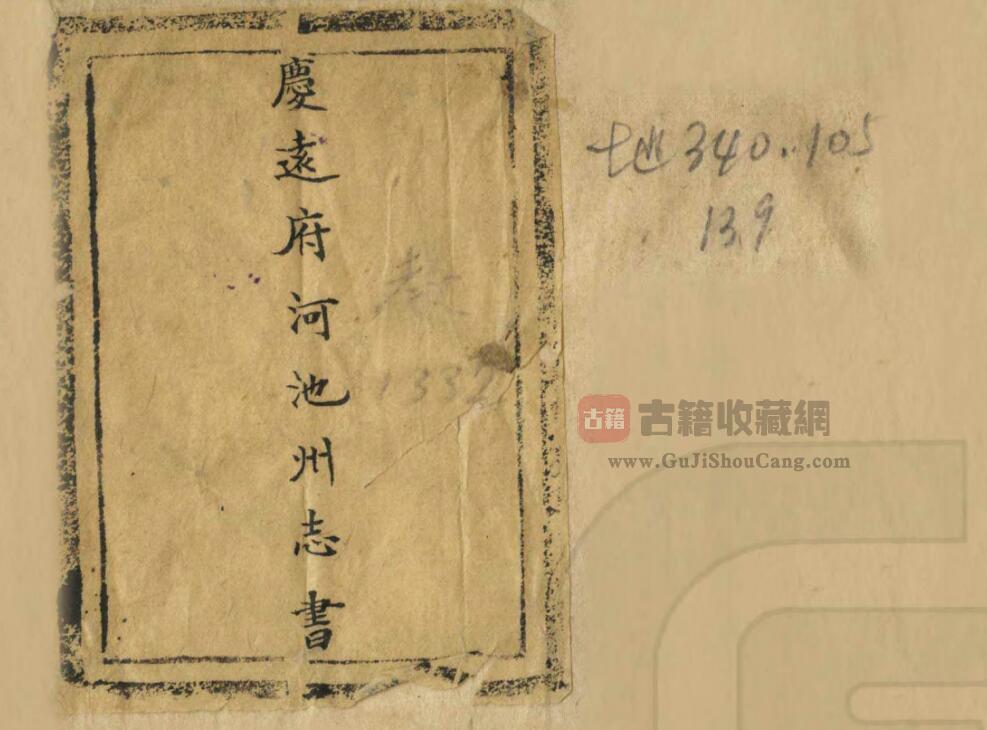 慶遠府河池州志書
地340.105
139
1332
古籍
古籍收藏網
www.GuJiShouCang.com